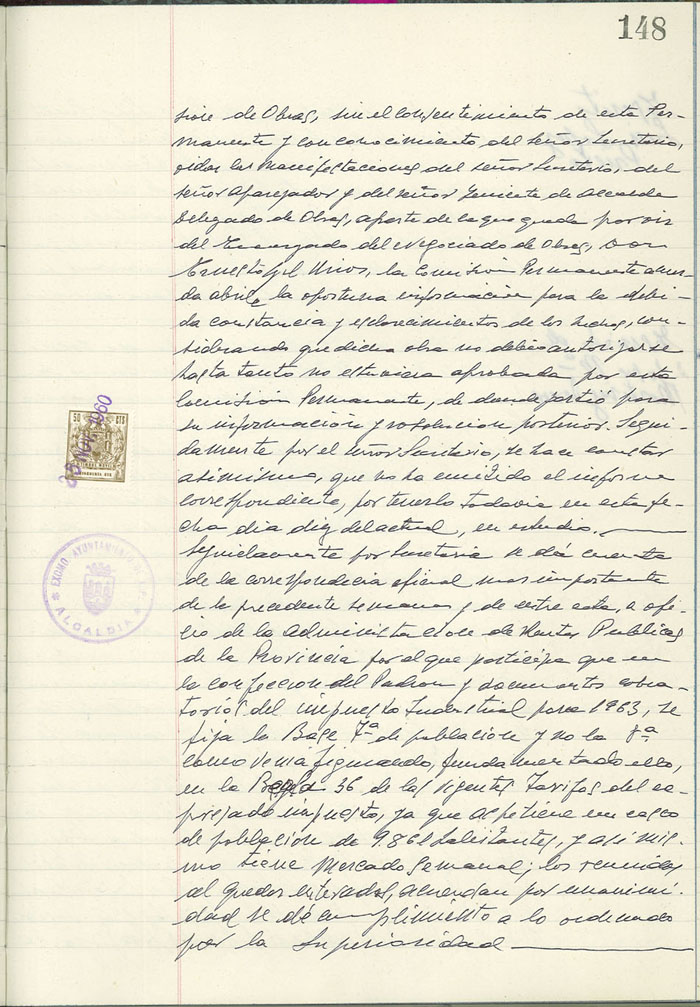 148
sion de Obras, sin el consentimiento de esta Per-
manente y con conocimiento del señor Secretario,
oidas las manifestaciones del señor Secretario, del
señor Aparejador y del señor Teniente de Alcalde
Delegado de Obras, aparte de la que queda por oir
del Encargado del Negociado de Obras, Don
Ernesto Gil, la Comisión Permanente acuer-
da abrir la oportuna información para la debi-
da constancia y esclarecimientos de los hechos, con-
siderando que dicha obra no debió autorizarse
hasta tanto no estuviera aprobada por esta
Comisión Permanente, de donde partió para
su información y resolución posterior. Segui-
damente por el señor Secretario, se hace constar
asimismo, que no ha emitido el informe
correspondiente, por tenerlo todavia en esta fe-
cha dia diez del actual, en estudio.
Seguidamente por Secretaria se dá cuenta
de la correspondencia oficial mas importante
de la precedente semana y de entre esta, a ofi-
cio de la Administracion de Rentas Publicas
de la Provincia por el que participa que en
la confeccion del Padron y documentos cobra-
torios del impuesto Industrial para 1963, se
fija la Base 7ª de poblacion y no la 8ª
como venia figurando, fundamentado ello,
en la Regla 36 de las vigentes Tarifas del ex-
presado impuesto, ya que aspetiene en casco
de poblacion de 9.861 habitantes, y asi mis-
mo tiene Mercado Semanal; los reunidos
al quedar enterados, acuerdan por unanimi-
dad se dé cumplimiento a lo ordenado
por la Superioridad
50 CTS
NOV. 1960
EXCMO. AYUNTAMIENTO
ALCALDIA